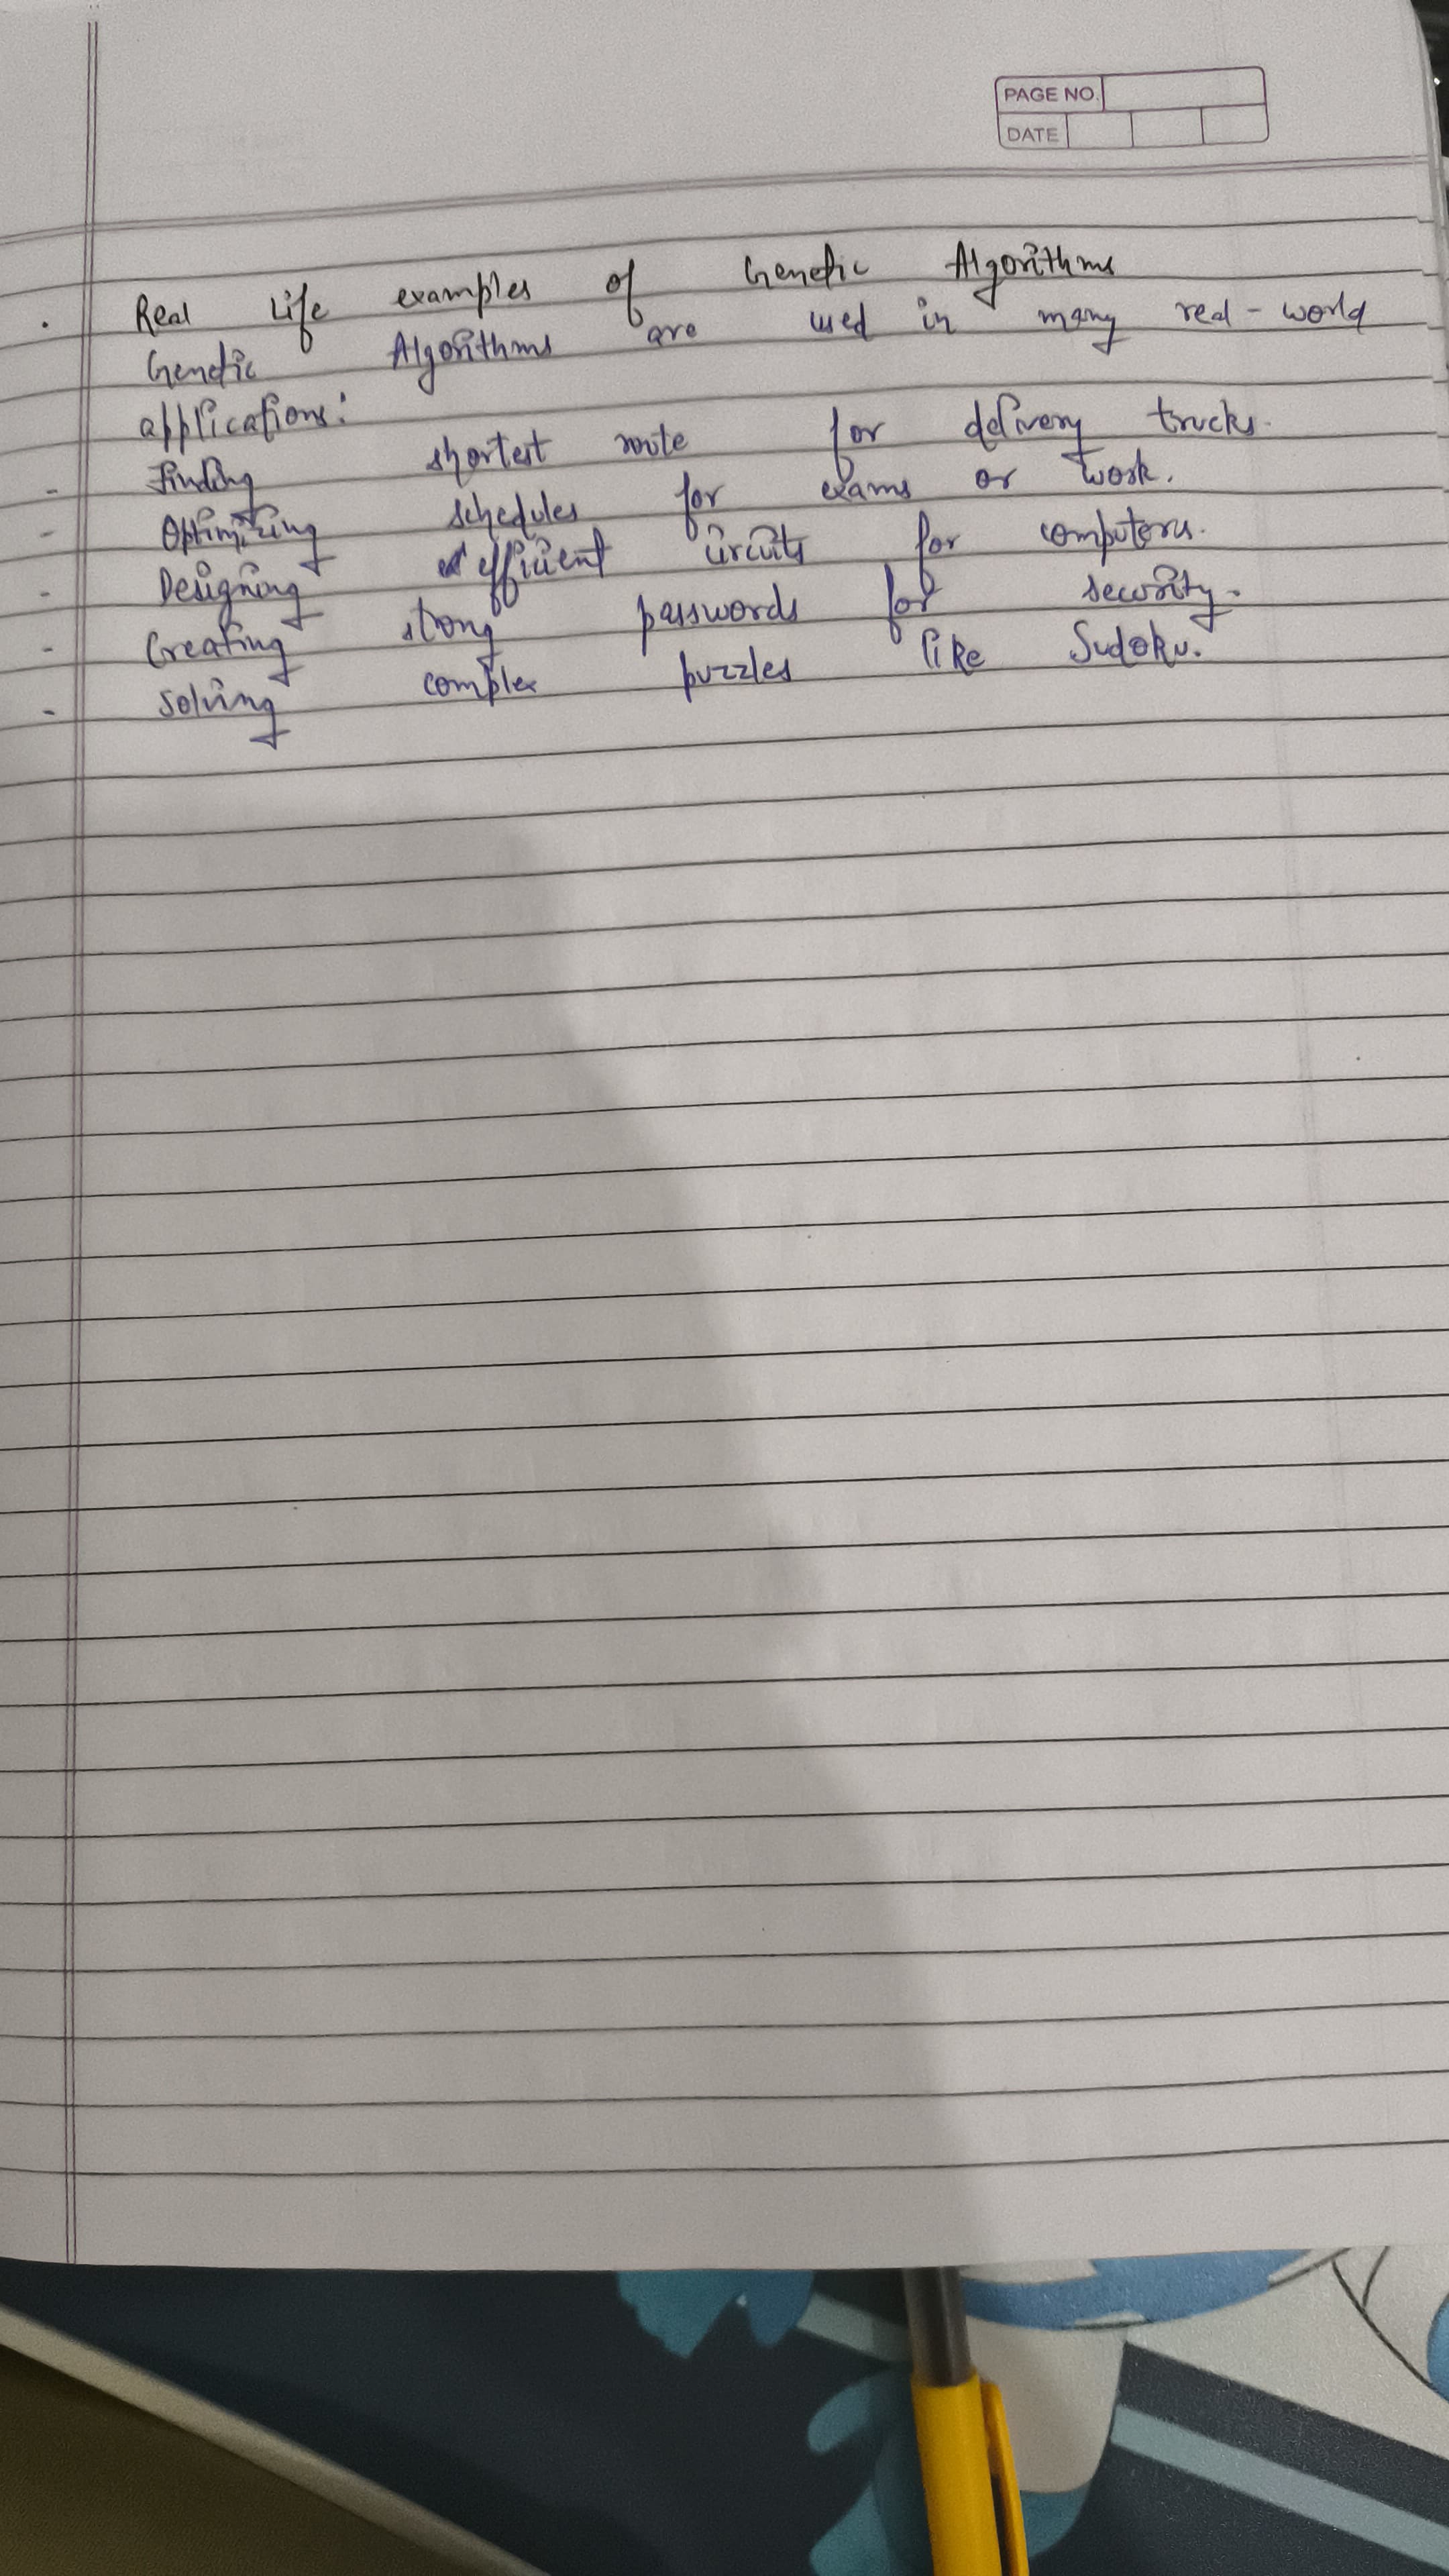 PAGE NO.
DATE
. Real Life examples of Genetic Algorithms
Genetic Algorithms are used in many real-world
applications:
- Finding shortest route for delivery trucks.
- Optimizing schedules for exams or work.
- Designing efficient circuits for computers.
- Creating strong passwords for security.
- Solving complex puzzles like Sudoku.